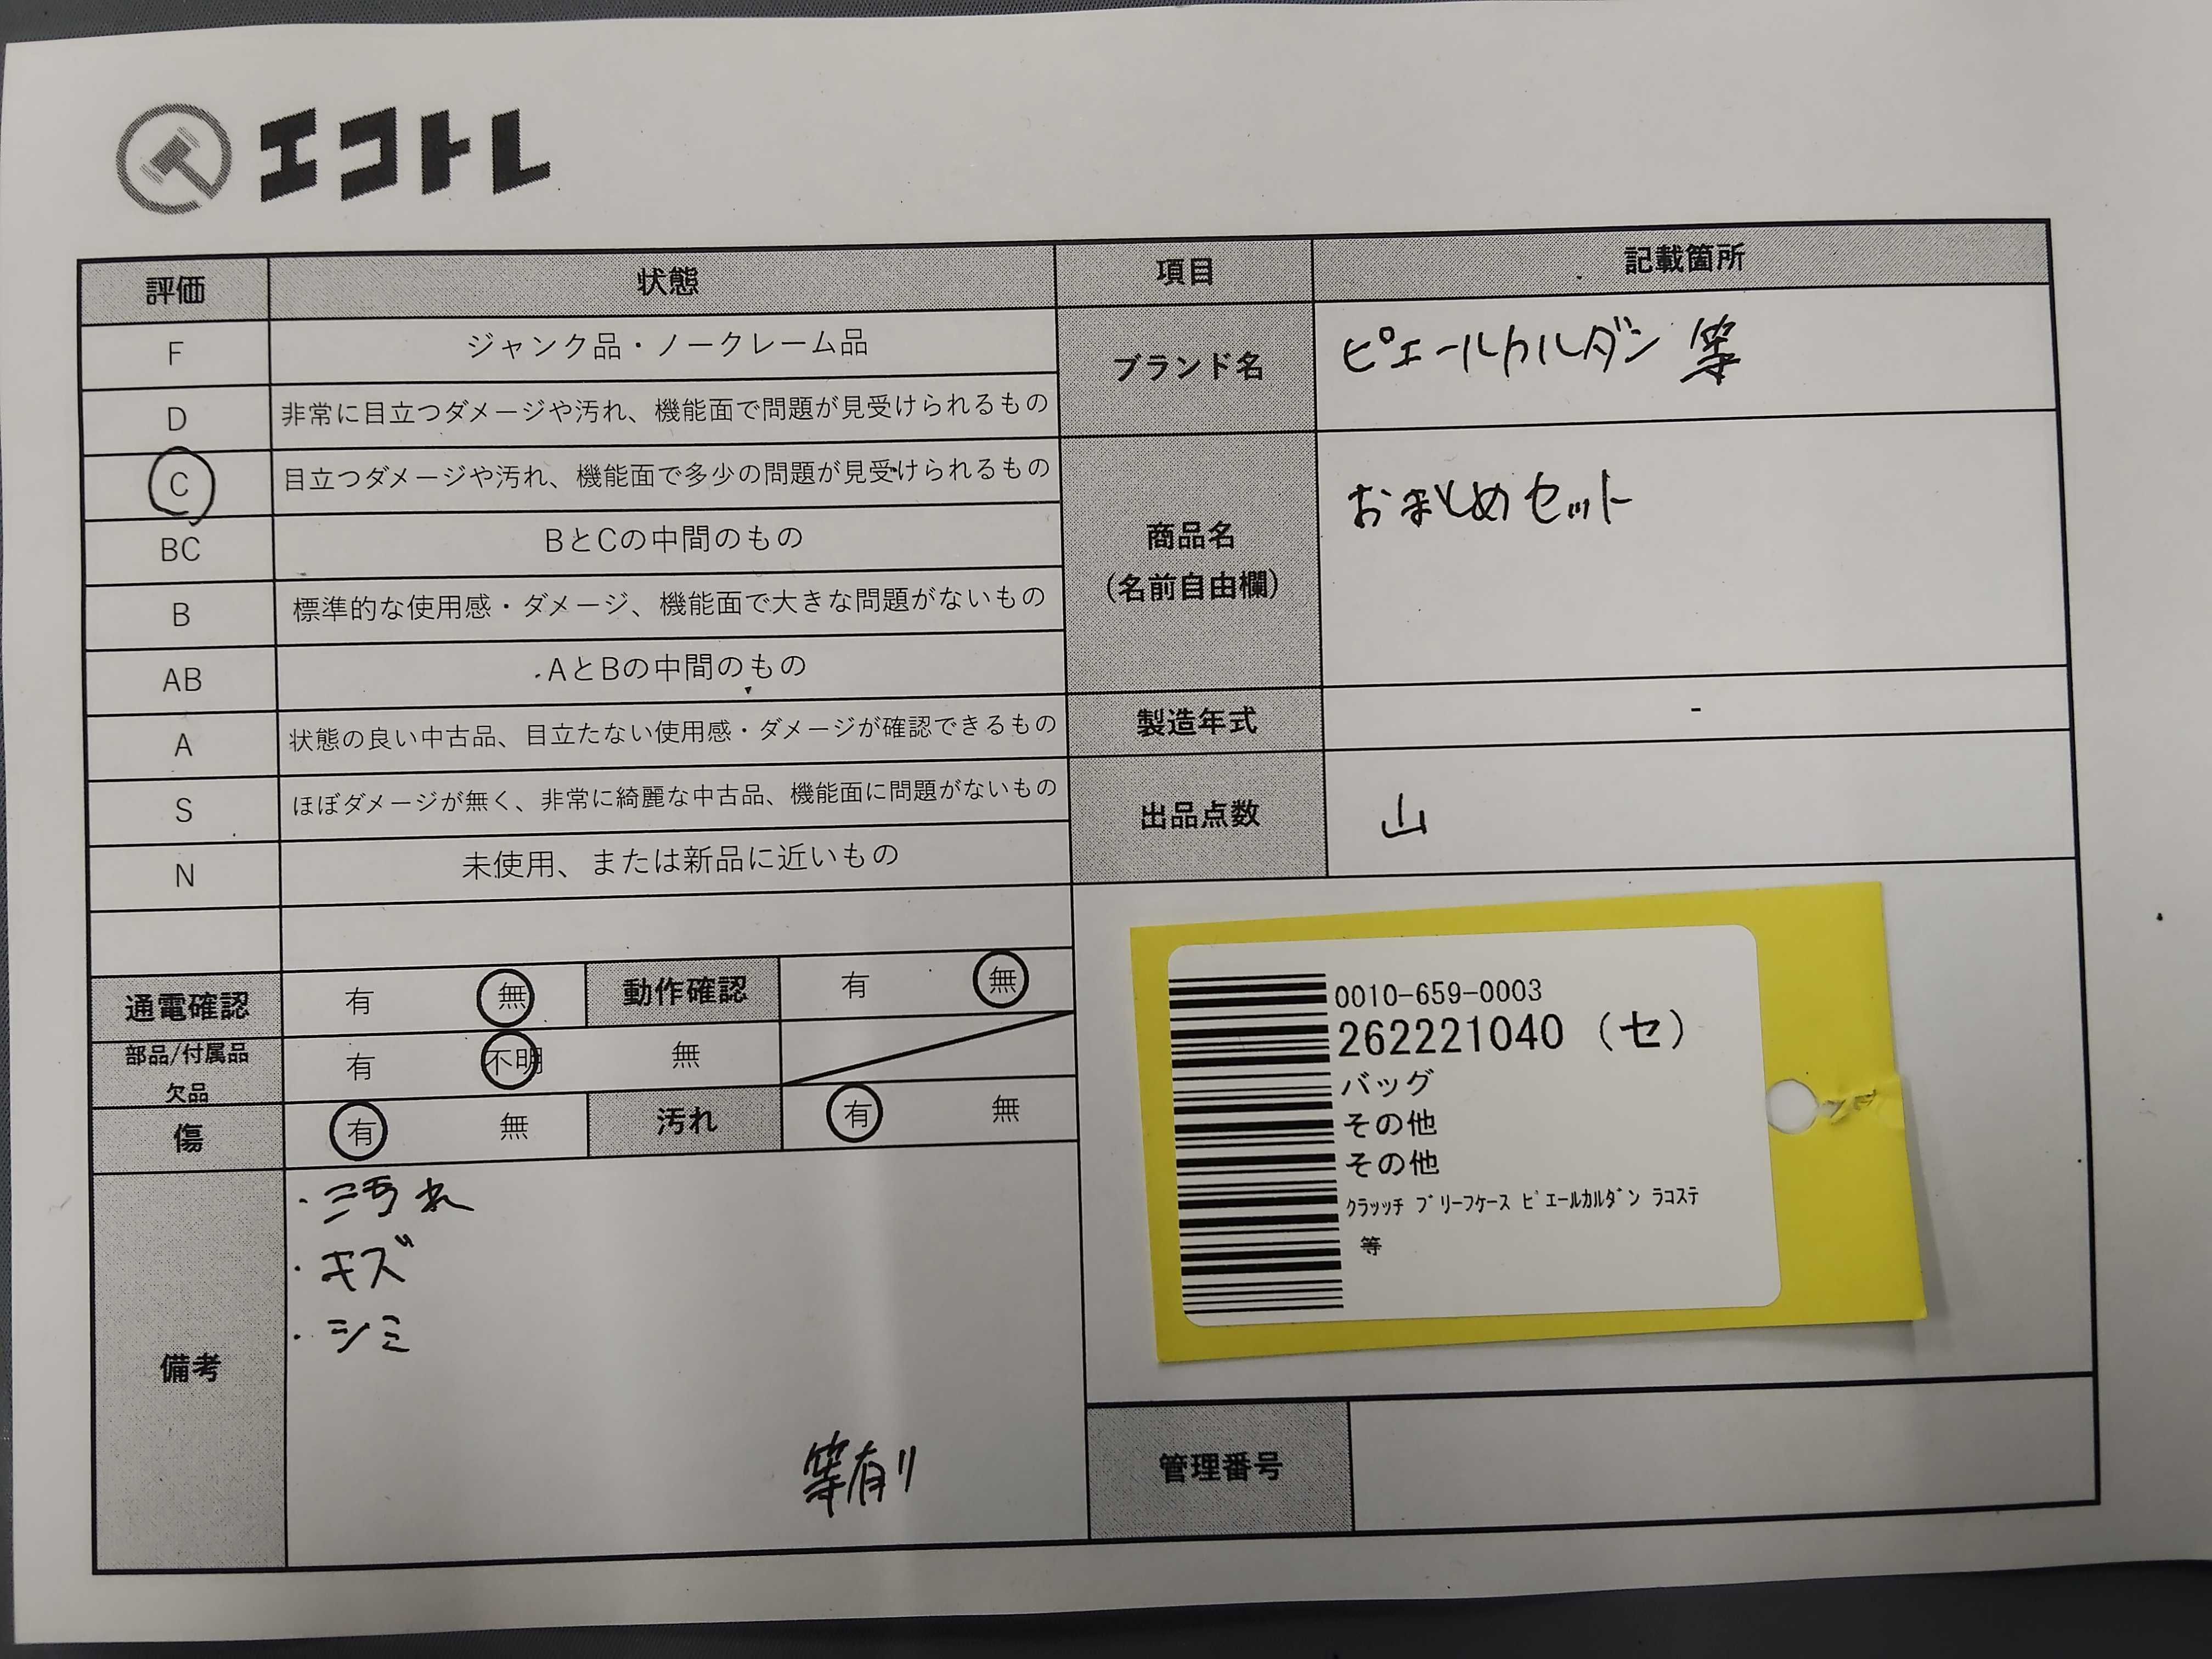 エコトレ
評価 状態 項目 記載箇所
F ジャンク品・ノークレーム品
D 非常に目立つダメージや汚れ、機能面で問題が見受けられるもの
C 目立つダメージや汚れ、機能面で多少の問題が見受けられるもの
BC BとCの中間のもの
B 標準的な使用感・ダメージ、機能面で大きな問題がないもの
AB AとBの中間のもの
A 状態の良い中古品、目立たない使用感・ダメージが確認できるもの
S ほぼダメージが無く、非常に綺麗な中古品、機能面に問題がないもの
N 未使用、または新品に近いもの
ブランド名 ピエールカルダン 等
商品名
(名前自由欄)
おまとめセット
製造年式 -
出品点数 山
通電確認 有 無 動作確認 有 無
部品/付属品
欠品
有 不明 無
傷 有 無 汚れ 有 無
備考
・汚れ
・キズ
・シミ
等有り
0010-659-0003
262221040 (セ)
バッグ
その他
その他
クラッッチ ブリーフケース ピエールカルダン ラコステ
等
管理番号